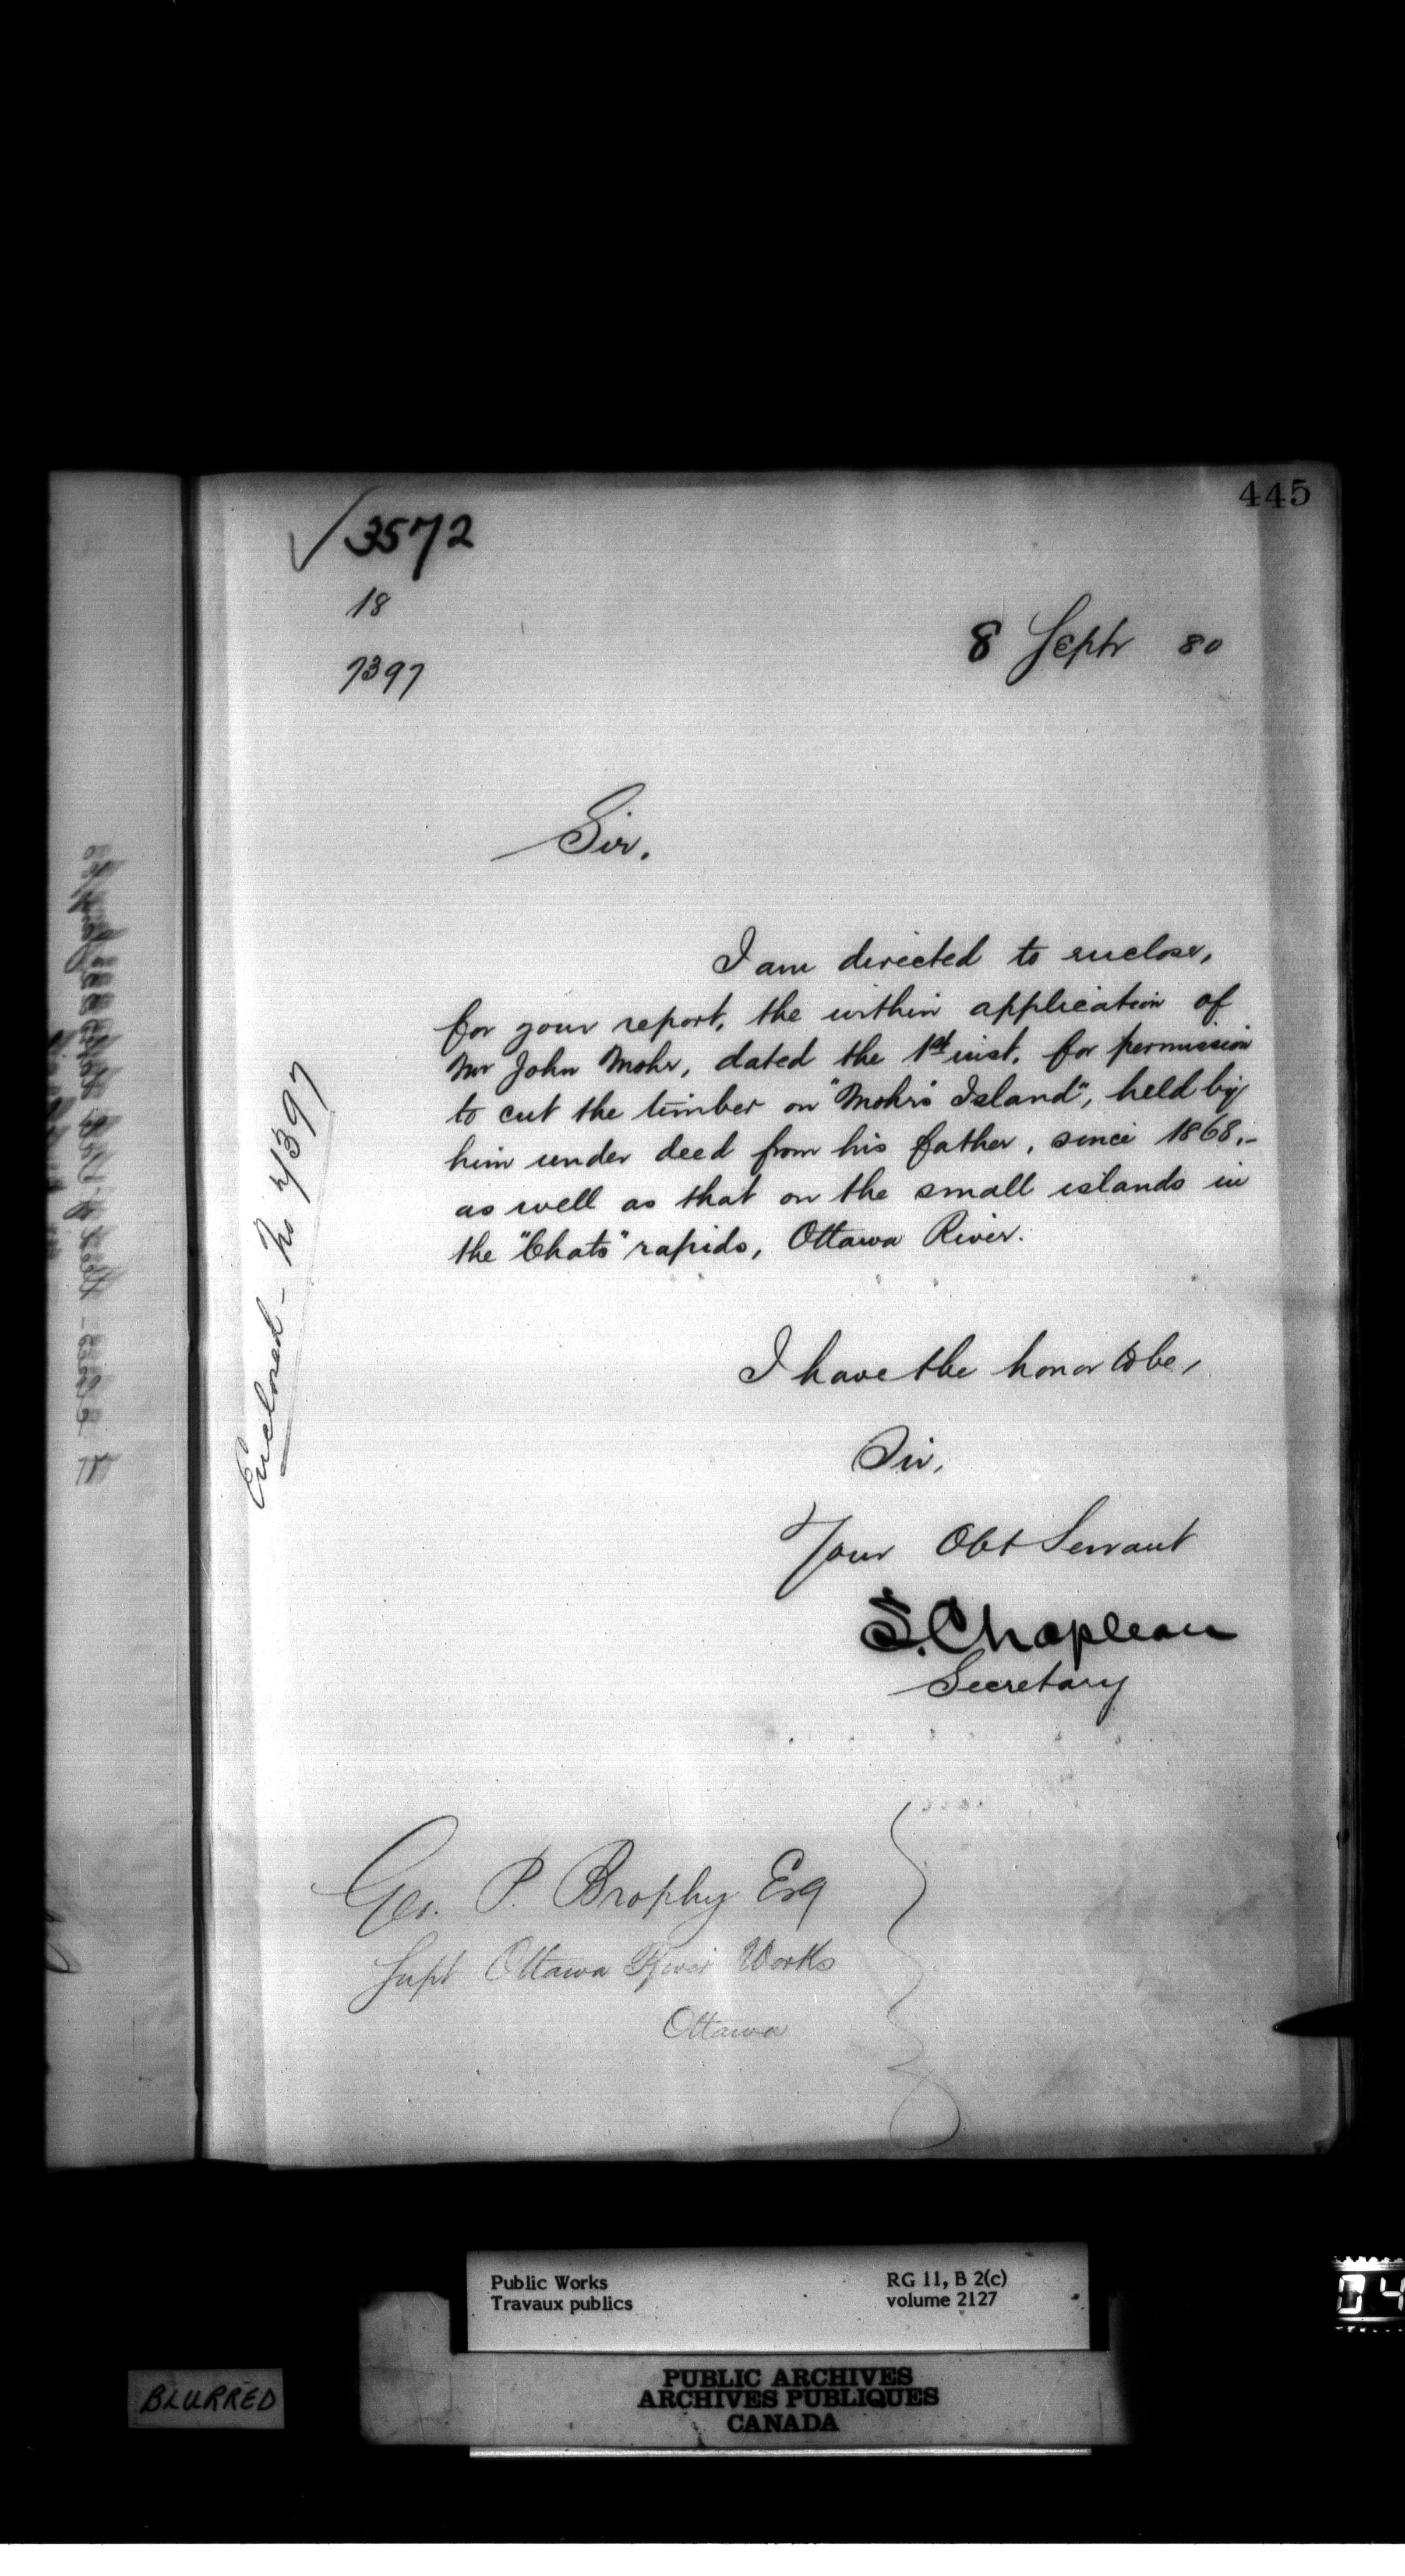 445
3572
18
7397
8 Septr 80
Sir,
I am directed to enclose,
for your report, the within application of
Mr John Mohr, dated the 1st inst. for permission
to cut the timber on "Mohr's Island", held by
him under deed from his father, since 1868,-
as well as that on the small islands in
the "Chats" rapids, Ottawa River.
Enclosed - No 7397
I have the honor to be,
Sir,
Your Obt Servant
S. Chapleau
Secretary
Geo. P. Brophy Esq
Supt Ottawa River Works
Ottawa
Public Works
Travaux publics
RG 11, B 2(c)
volume 2127
PUBLIC ARCHIVES
ARCHIVES PUBLIQUES
CANADA
BLURRED
04